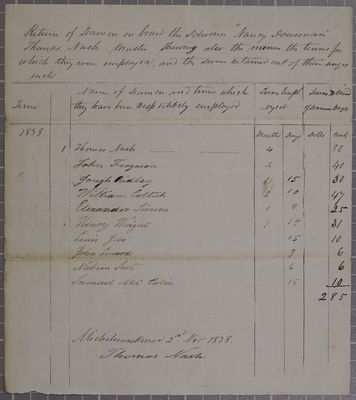 Return of Seamen on board the Schooner "Nancy Dousman"
Thomas Nash Master Shewing also the names the terms for
which they were employed, and the sums retained out of their wages
each
Terms Name of Seamen and times which they have been respectively employed Time employed Sums
Months Days Dolls Cents
1838
Thomas Nash 4 80
John Ferguson 2 40
Joseph Ridley 1 15 30
William 2 10 47
Elexander Simson 1 8 25
Henry Wright 1 17 31
Luis 15 10
John 9 6
Nelson Scot 6 6
Samuel Mc 15 10
2 85
Michilimackinac 2d Nov 1838.
Thomas Nash